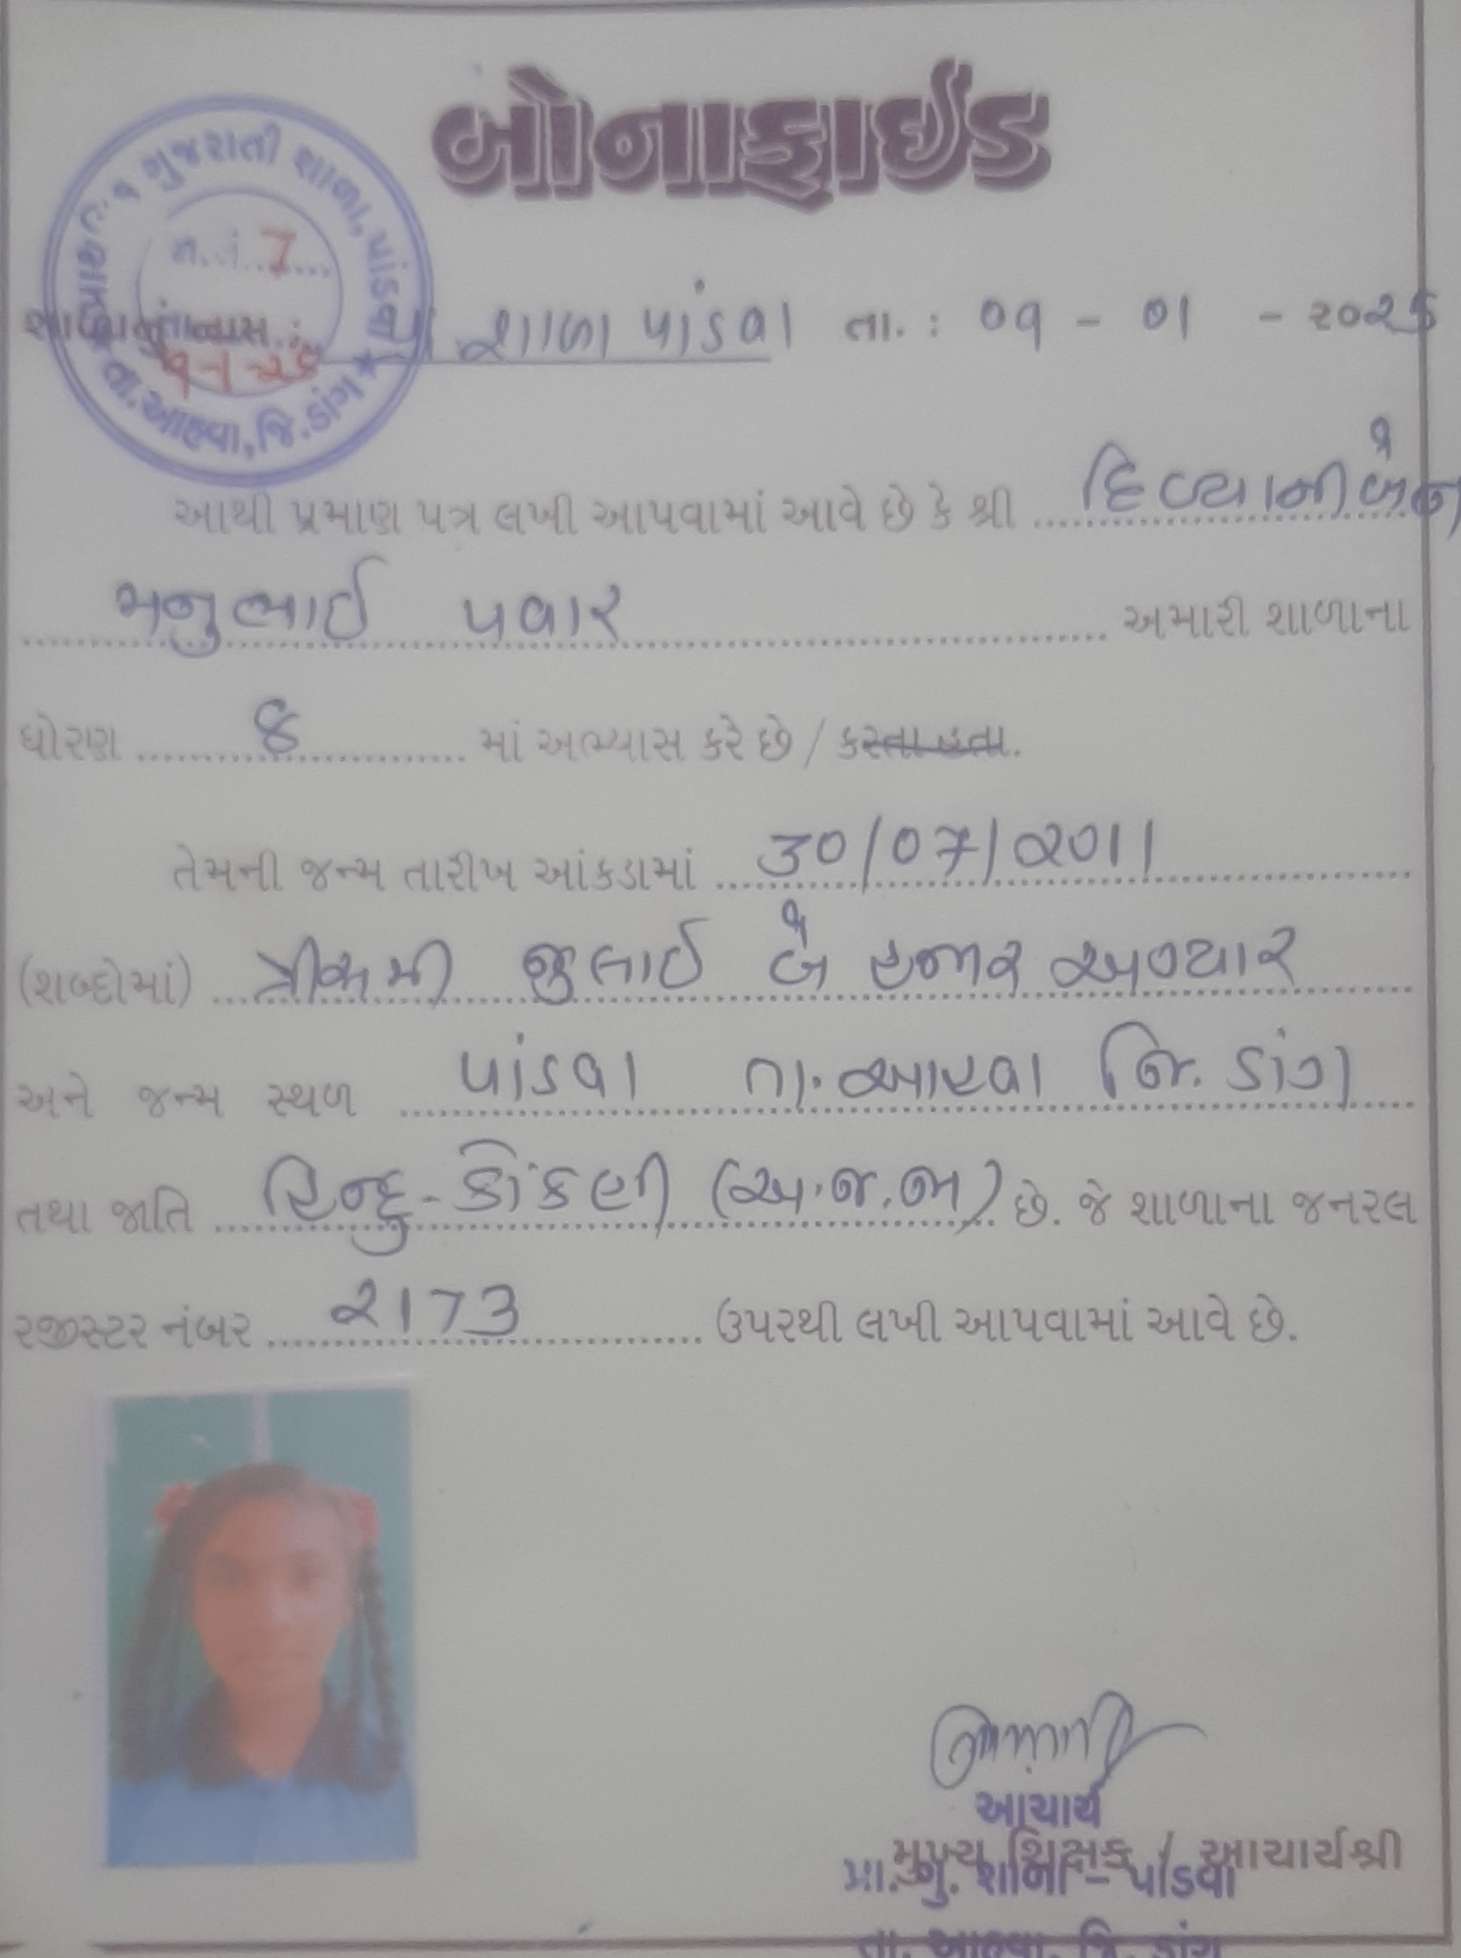 બોનાફાઈડ
પ્રાથમિક ગુજરાતી શાળા, પાંડવા
7
તા.આહવા, જિ.ડાંગ
શાળા પાંડવા તા.: ૦૧ - ૦૧ - ૨૦૨૬
આથી પ્રમાણ પત્ર લખી આપવામાં આવે છે કે શ્રી દિવ્યાનીબેન
મનુભાઈ પવાર અમારી શાળાના
ધોરણ ૪ માં અભ્યાસ કરે છે / કરતા હતા.
તેમની જન્મ તારીખ આંકડામાં ૩૦/૦૭/૨૦૧૧
(શબ્દોમાં) ત્રીસમી જુલાઈ બે હજાર અગ્યાર
અને જન્મ સ્થળ પાંડવા તા.આહવા જિ. ડાંગ
તથા જાતિ હિન્દુ-કોંકણી (અ.જ.જા) છે. જે શાળાના જનરલ
રજીસ્ટર નંબર ૨૧૭૩ ઉપરથી લખી આપવામાં આવે છે.
આચાર્ય
મુખ્ય શિક્ષક / આચાર્યશ્રી
પ્રા. ગુ. શાળા - પાંડવા
તા. આહવા, જિ. ડાંગ